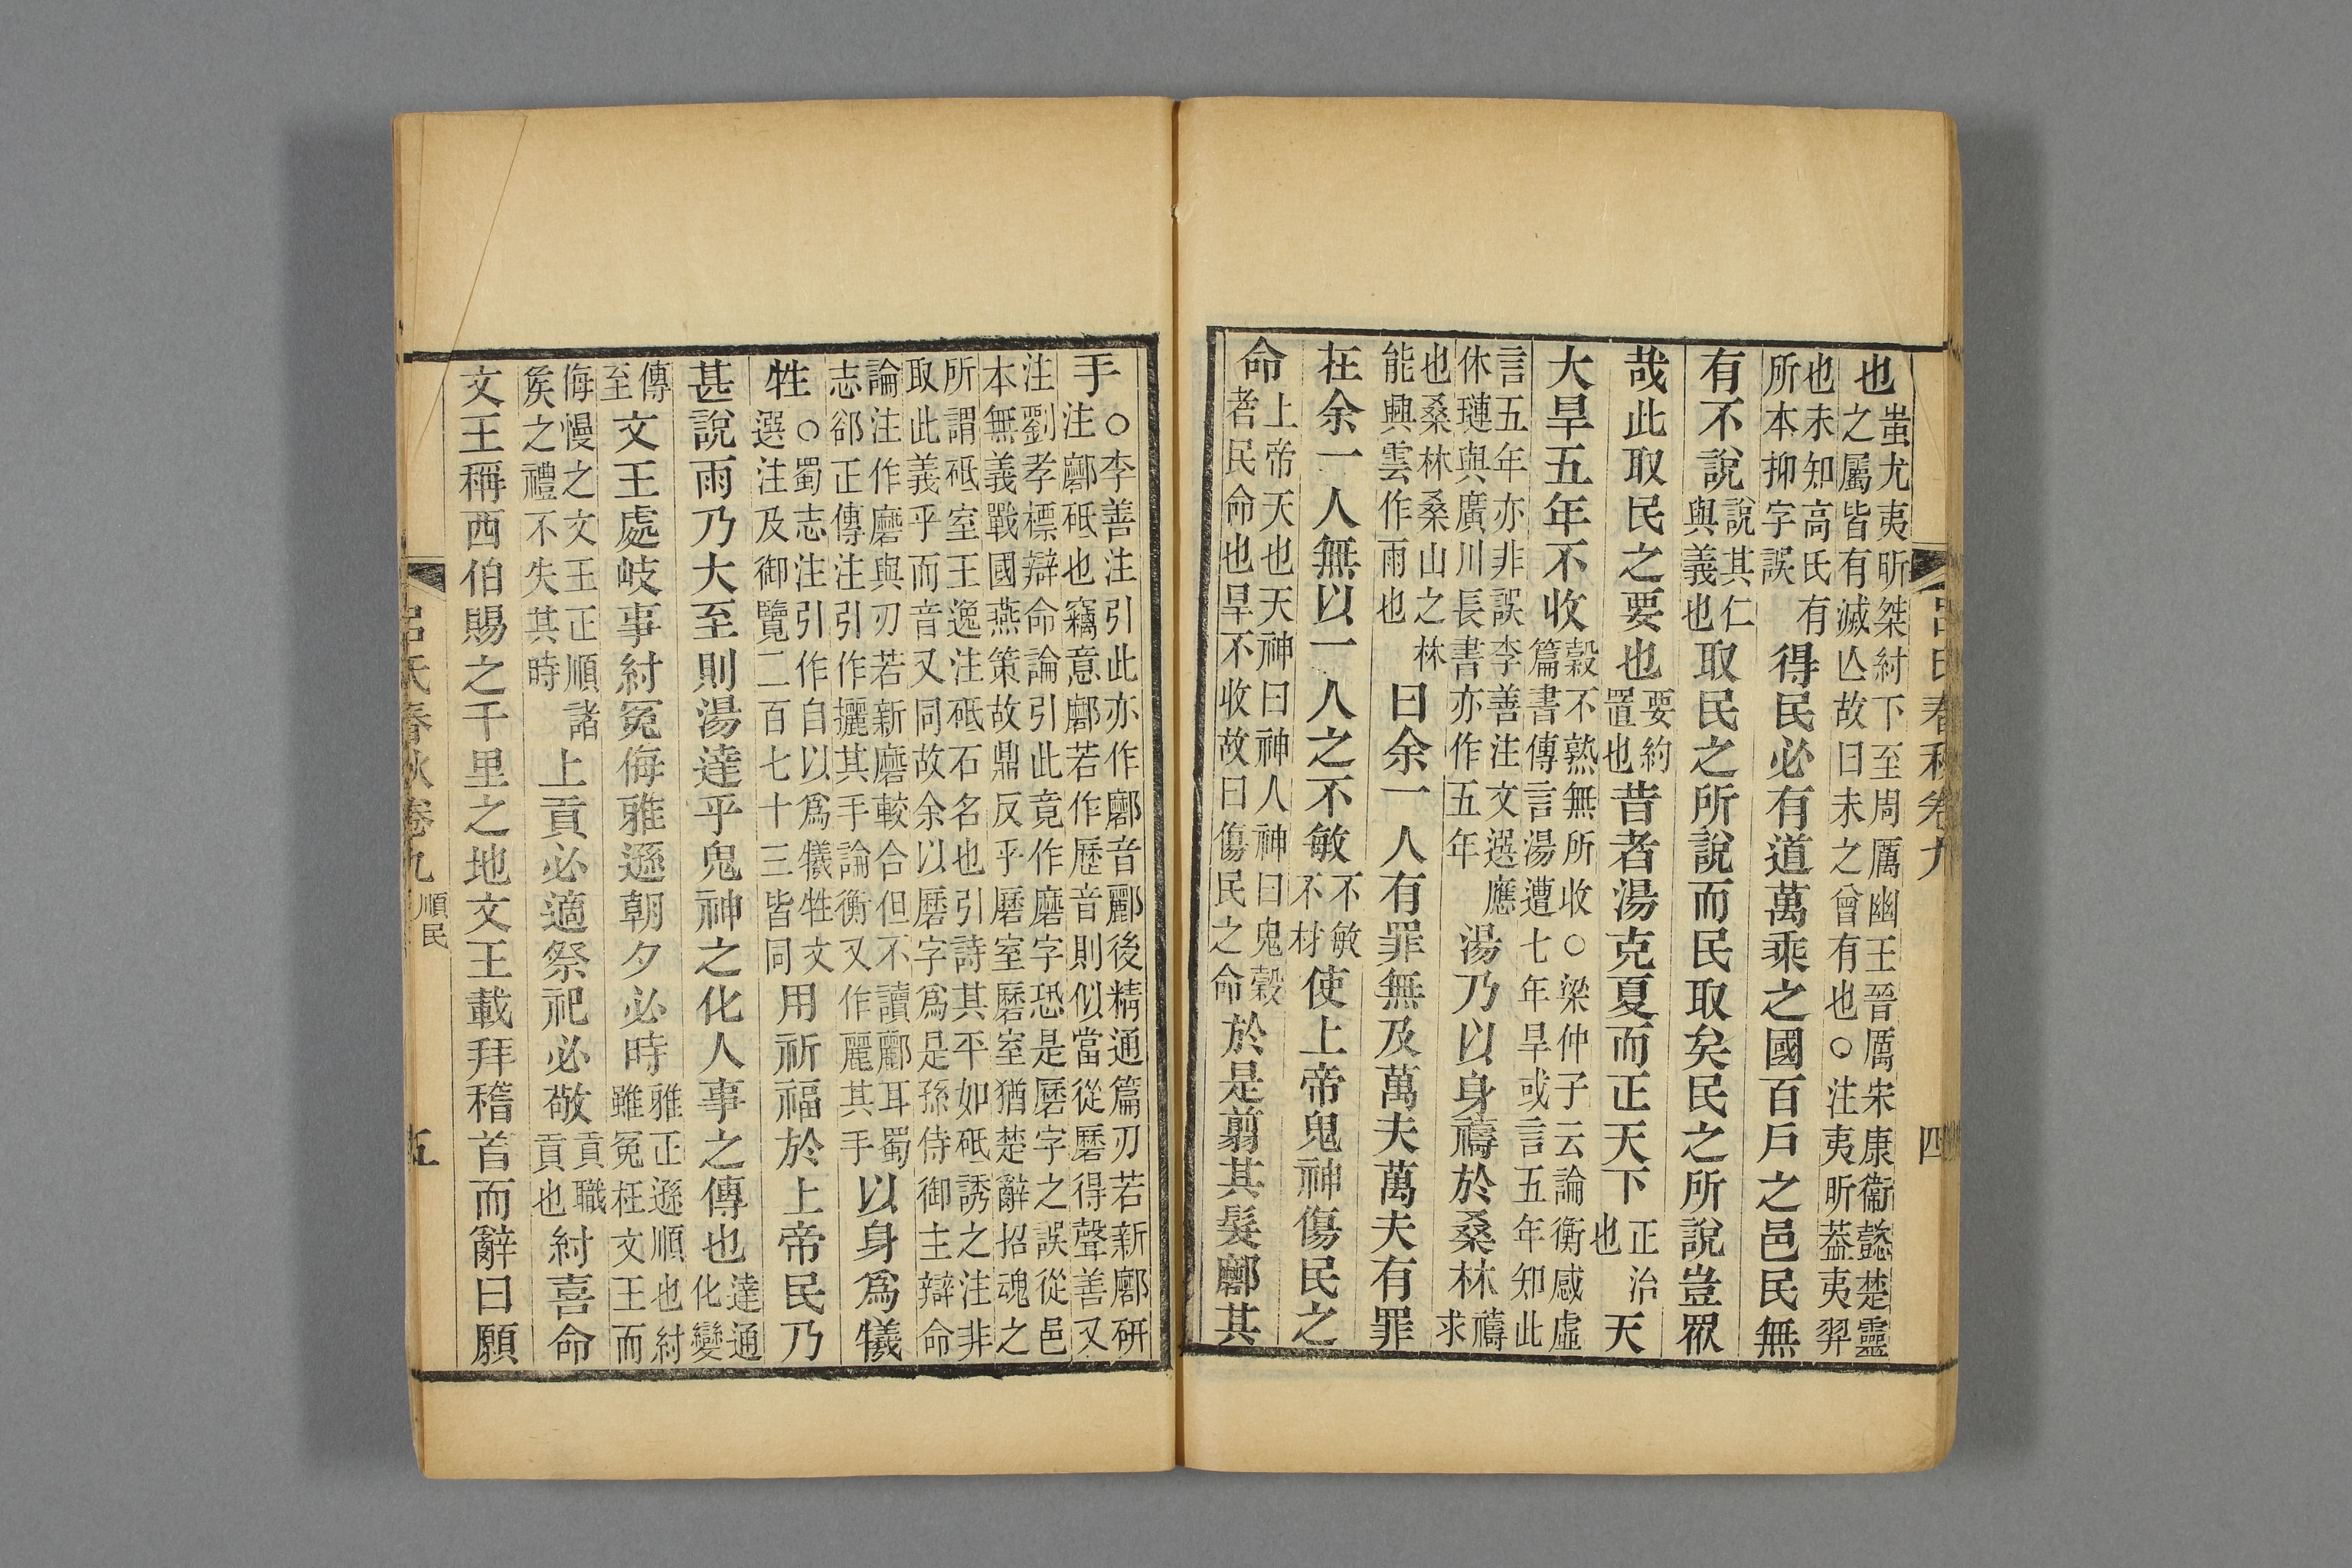 呂氏春秋卷九 四
也蚩尤夷昕桀紂下至周厲幽王晉厲宋康衞懿楚靈之屬皆有滅亾故曰未之曾有也○注夷昕葢夷羿
也未知高氏有所本抑字誤得民必有道萬乘之國百戶之邑民無
有不說說其仁與義也取民之所說而民取矣民之所說豈眾
哉此取民之要也要約置也昔者湯克夏而正天下正治也天
大旱五年不收穀不熟無所收○梁仲子云論衡感虛篇書傳言湯遭七年旱或言五年知此
言五年亦非誤李善注文選應休璉與廣川長書亦作五年湯乃以身禱於桑林禱求
也桑林桑山之林能興雲作雨也曰余一人有罪無及萬夫萬夫有罪
在余一人無以一人之不敏不敏不材使上帝鬼神傷民之
命上帝天也天神曰神人神曰鬼穀者民命也旱不收故曰傷民之命於是翦其髮䣙其
手○李善注引此亦作䣙音酈後精通篇刃若新䣙硏注䣙砥也竊意䣙若作歷音則似當從磿得聲善又
注劉孝標辯命論引此竟作磨字恐是磿字之誤從邑本無義戰國燕策故鼎反乎磿室磿室猶楚辭招魂之
所謂砥室王逸注砥石名也引詩其平如砥誘之注非取此義乎而音又同故余以磿字爲是孫侍御主辯命
論注作磨與刃若新磨較合但不讀酈耳蜀志郤正傳注引作攦其手論衡又作麗其手以身爲犧
牲○蜀志注引作自以爲犧牲文選注及御覽二百七十三皆同用祈福於上帝民乃
甚說雨乃大至則湯達乎鬼神之化人事之傳也達通化變
傳至文王處岐事紂冤侮雅遜朝夕必時雅正遜順也紂雖冤枉文王而
侮慢之文王正順諸矦之禮不失其時上貢必適祭祀必敬貢職貢也紂喜命
文王稱西伯賜之千里之地文王載拜稽首而辭曰願
呂氏春秋卷九 順民 五